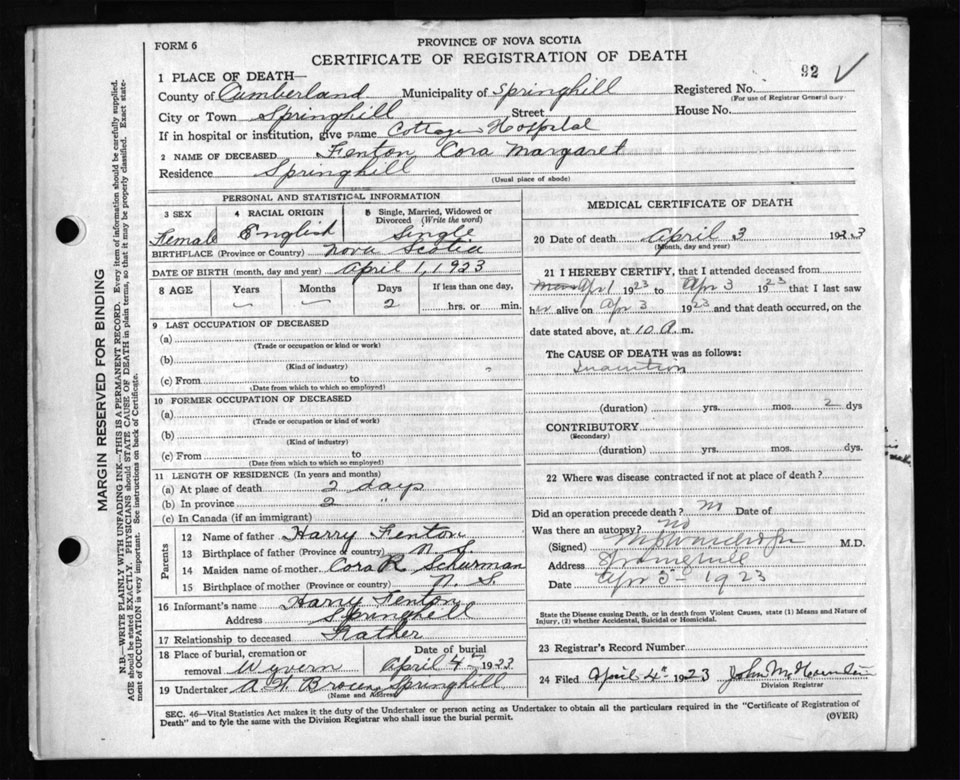 FORM 6
PROVINCE OF NOVA SCOTIA
CERTIFICATE OF REGISTRATION OF DEATH
92 ✓
1 PLACE OF DEATH—
County of Cumberland Municipality of Springhill Registered No.
(For use of Registrar General only)
City or Town Springhill Street House No.
If in hospital or institution, give name Cottage Hospital
2 NAME OF DECEASED Fenton Cora Margaret
Residence Springhill
(Usual place of abode)
PERSONAL AND STATISTICAL INFORMATION
3 SEX 4 RACIAL ORIGIN 5 Single, Married, Widowed or Divorced (Write the word)
Female English Single
BIRTHPLACE (Province or Country) Nova Scotia
DATE OF BIRTH (month, day and year) April 1, 1923
8 AGE Years Months Days If less than one day,
— — 2 hrs. or min.
9 LAST OCCUPATION OF DECEASED
(a)
(Trade or occupation or kind or work)
(b)
(Kind of industry)
(c) From to
(Date from which to which so employed)
10 FORMER OCCUPATION OF DECEASED
(a)
(Trade or occupation or kind or work)
(b)
(Kind of industry)
(c) From to
(Date from which to which so employed)
11 LENGTH OF RESIDENCE (In years and months)
(a) At place of death 2 days
(b) In province 2 "
(c) In Canada (if an immigrant)
Parents
12 Name of father Harry Fenton
13 Birthplace of father (Province or country) N S.
14 Maiden name of mother Cora R Schurman
15 Birthplace of mother (Province or country) N. S.
16 Informant's name Harry Fenton
Address Springhill
17 Relationship to deceased Father
18 Place of burial, cremation or removal Wyvern
Date of burial April 4th 1923
19 Undertaker Brown Springhill
(Name and Address)
MEDICAL CERTIFICATE OF DEATH
20 Date of death April 3 1923
(Month, day and year)
21 I HEREBY CERTIFY, that I attended deceased from
Apr 1 1923 to Apr 3 1923 that I last saw
her alive on Apr 3 1923 and that death occurred, on the
date stated above, at 10 A. m.
The CAUSE OF DEATH was as follows:
Inanition
(duration) yrs. mos. 2 dys
CONTRIBUTORY
(Secondary)
(duration) yrs. mos. dys.
22 Where was disease contracted if not at place of death?
Did an operation precede death? No Date of
Was there an autopsy? No
(Signed) M.D.
Address Springhill
Date Apr 5 - 1923
State the Disease causing Death, or in death from Violent Causes, state (1) Means and Nature of
Injury, (2) whether Accidental, Suicidal or Homicidal.
23 Registrar's Record Number
24 Filed April 4th 1923 John M
Division Registrar
SEC. 46—Vital Statistics Act makes it the duty of the Undertaker or person acting as Undertaker to obtain all the particulars required in the "Certificate of Registration of
Death" and to fyle the same with the Division Registrar who shall issue the burial permit. (OVER)
MARGIN RESERVED FOR BINDING
N.B.—WRITE PLAINLY WITH UNFADING INK—THIS IS A PERMANENT RECORD. Every item of information should be carefully supplied.
AGE should be stated EXACTLY. PHYSICIANS should STATE CAUSE OF DEATH in plain terms, so that it may be properly classified. Exact state-
ment of OCCUPATION is very important. See instructions on back of Certificate.